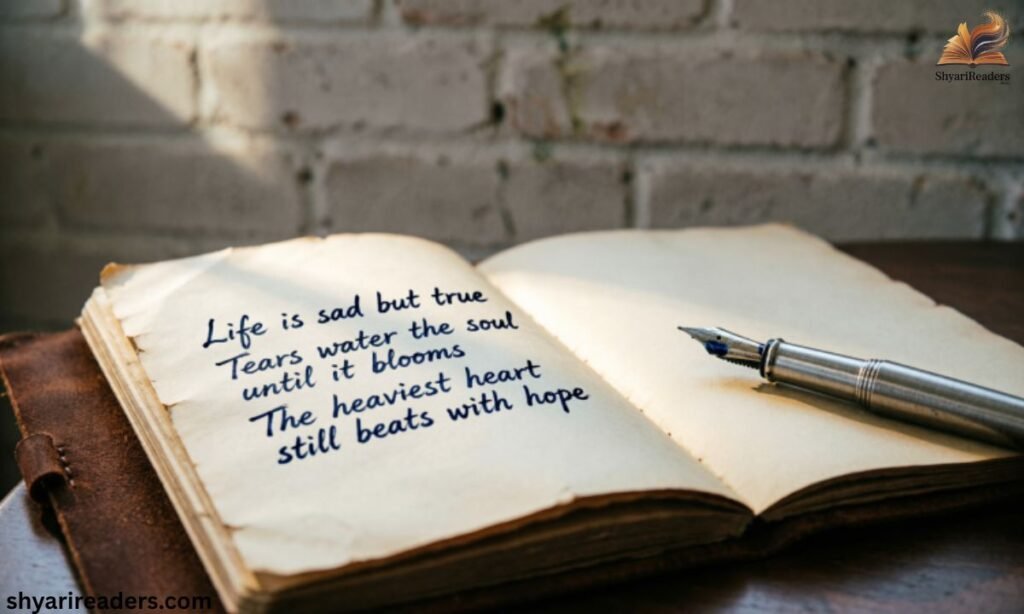 ShyariReaders
Life is sad but true
Tears water the soul
until it blooms
The heaviest heart
still beats with hope
shyarireaders.com